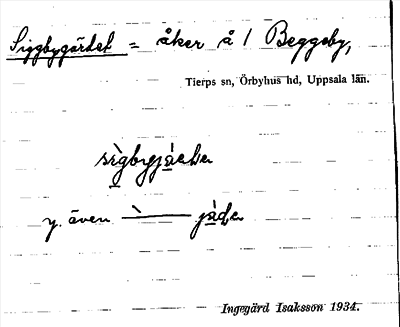 Siggbygärdet = åker å / Beggeby,
Tierps sn, Örbyhus hd, Uppsala län.
y. även
Ingegärd Isaksson 1934.